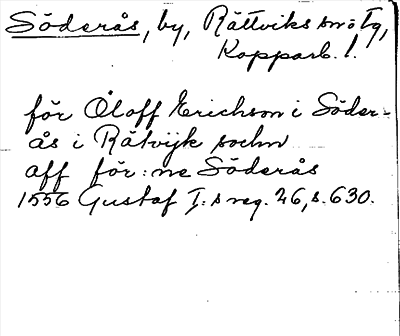 Söderås, by, Rättviks sn o tg,
Kopparb. l.
för Oloff Erichson i Söder-
ås i Rätvijk sochn
aff för:ne Söderås
1556 Gustaf I:s reg. 26, s. 630.